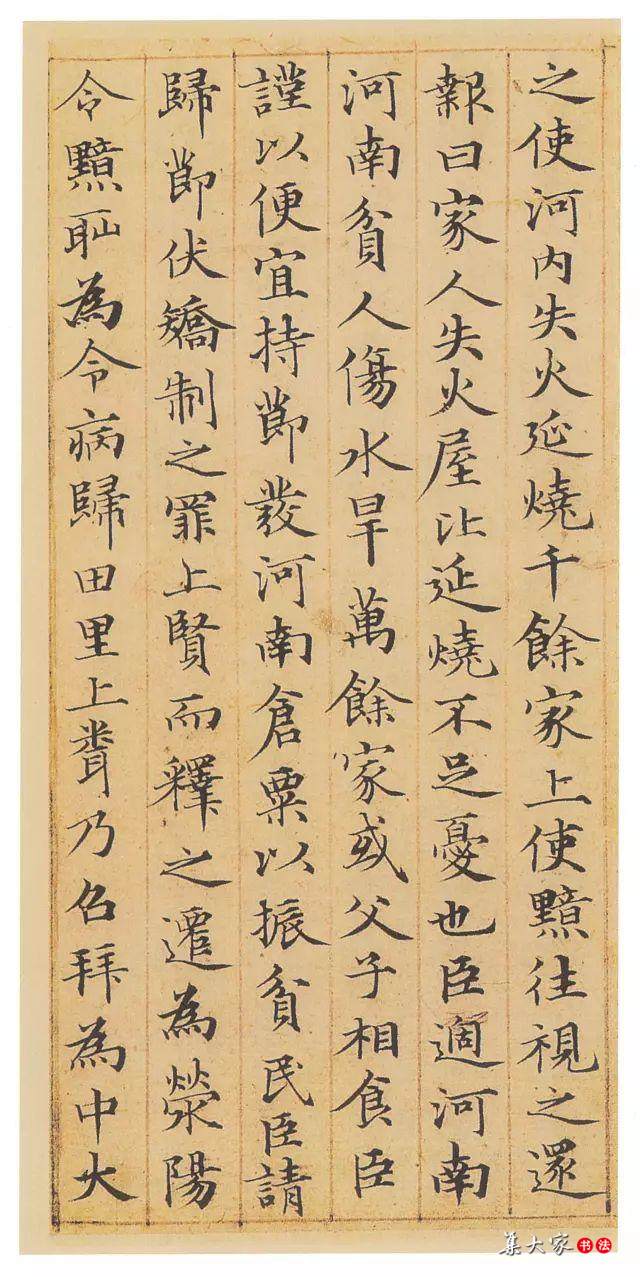 之使河內失火延燒千餘家上使黯往視之還
報曰家人失火屋比延燒不足憂也臣適河南
河南貧人傷水旱萬餘家或父子相食臣
謹以便宜持節發河南倉粟以振貧民臣請
歸節伏矯制之罪上賢而釋之遷為滎陽
令黯恥為令病歸田里上聞乃召拜為中大
集大家书法